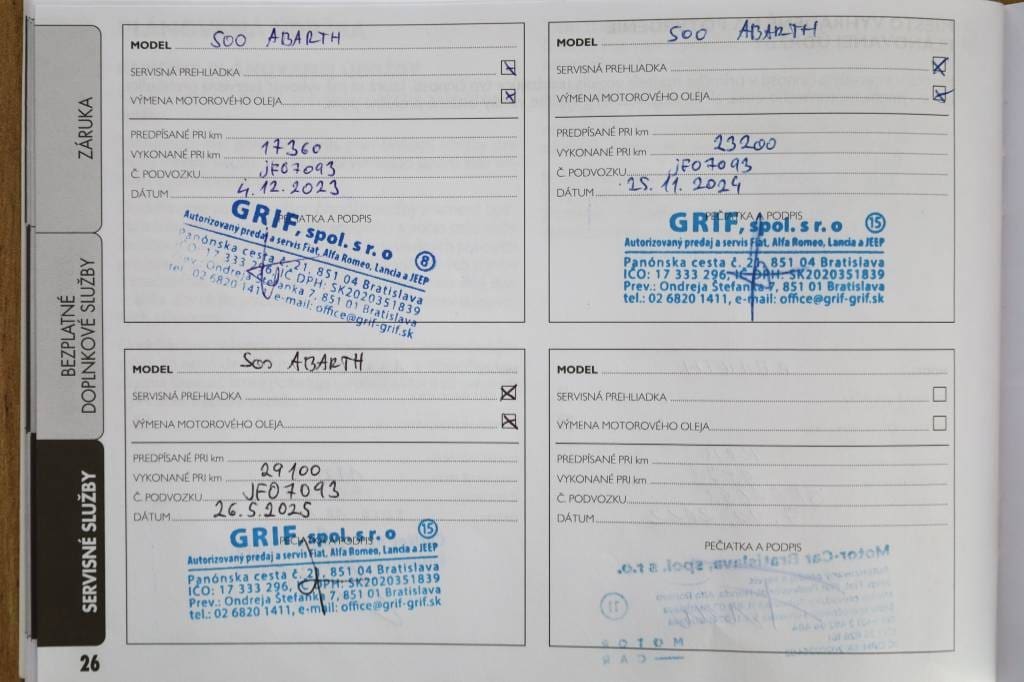 ZÁRUKA
BEZPLATNÉ
DOPLNKOVÉ SLUŽBY
SERVISNÉ SLUŽBY
26
MODEL 500 ABARTH
SERVISNÁ PREHLIADKA
VÝMENA MOTOROVÉHO OLEJA
PREDPÍSANÉ PRI km
VYKONANÉ PRI km 17360
Č. PODVOZKU JF07093
DÁTUM 4.12.2023
PEČIATKA A PODPIS
GRIF, spol. s r. o 8
Autorizovaný predaj a servis Fiat, Alfa Romeo, Lancia a JEEP
Panónska cesta č. 21, 851 04 Bratislava
IČO: 17 333 296, IČ DPH: SK2020351839
Prev.: Ondreja Štefanka 7, 851 01 Bratislava
tel.: 02 6820 1411, e-mail: office@grif-grif.sk
MODEL 500 ABARTH
SERVISNÁ PREHLIADKA
VÝMENA MOTOROVÉHO OLEJA
PREDPÍSANÉ PRI km
VYKONANÉ PRI km 23200
Č. PODVOZKU JF07093
DÁTUM 25.11.2024
PEČIATKA A PODPIS
GRIF, spol. s r. o 15
Autorizovaný predaj a servis Fiat, Alfa Romeo, Lancia a JEEP
Panónska cesta č. 21, 851 04 Bratislava
IČO: 17 333 296, IČ DPH: SK2020351839
Prev.: Ondreja Štefanka 7, 851 01 Bratislava
tel.: 02 6820 1411, e-mail: office@grif-grif.sk
MODEL 500 ABARTH
SERVISNÁ PREHLIADKA
VÝMENA MOTOROVÉHO OLEJA
PREDPÍSANÉ PRI km
VYKONANÉ PRI km 29100
Č. PODVOZKU JF07093
DÁTUM 26.5.2025
PEČIATKA A PODPIS
GRIF, spol. s r. o 15
Autorizovaný predaj a servis Fiat, Alfa Romeo, Lancia a JEEP
Panónska cesta č. 21, 851 04 Bratislava
IČO: 17 333 296, IČ DPH: SK2020351839
Prev.: Ondreja Štefanka 7, 851 01 Bratislava
tel.: 02 6820 1411, e-mail: office@grif-grif.sk
MODEL
SERVISNÁ PREHLIADKA
VÝMENA MOTOROVÉHO OLEJA
PREDPÍSANÉ PRI km
VYKONANÉ PRI km
Č. PODVOZKU
DÁTUM
PEČIATKA A PODPIS
Motor-Car Bratislava, spol. s r.o.
11
MOTOR
CAR